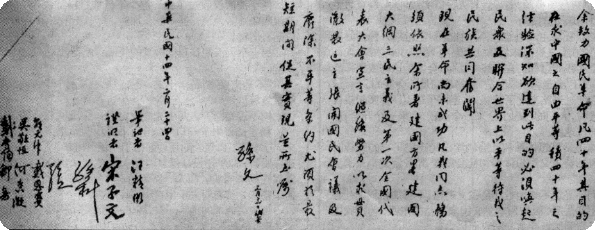 余致力國民革命凡四十年其目的
在求中國之自由平等積四十年之
經驗深知欲達到此目的必須喚起
民眾及聯合世界上以平等待我之
民族共同奮鬪
現在革命尚未成功凡我同志務
須依照余所著建國方略建國
大綱三民主義及第一次全國代
表大會宣言繼續努力以求貫
澈最近主張開國民會議及
廢除不平等條約尤須於最
短期間促其實現是所至囑
孫文
中華民國十四年二月二十四
筆記者 汪精衛
證明者 宋子文
孫科
戴恩賽
吳敬恆 何香凝